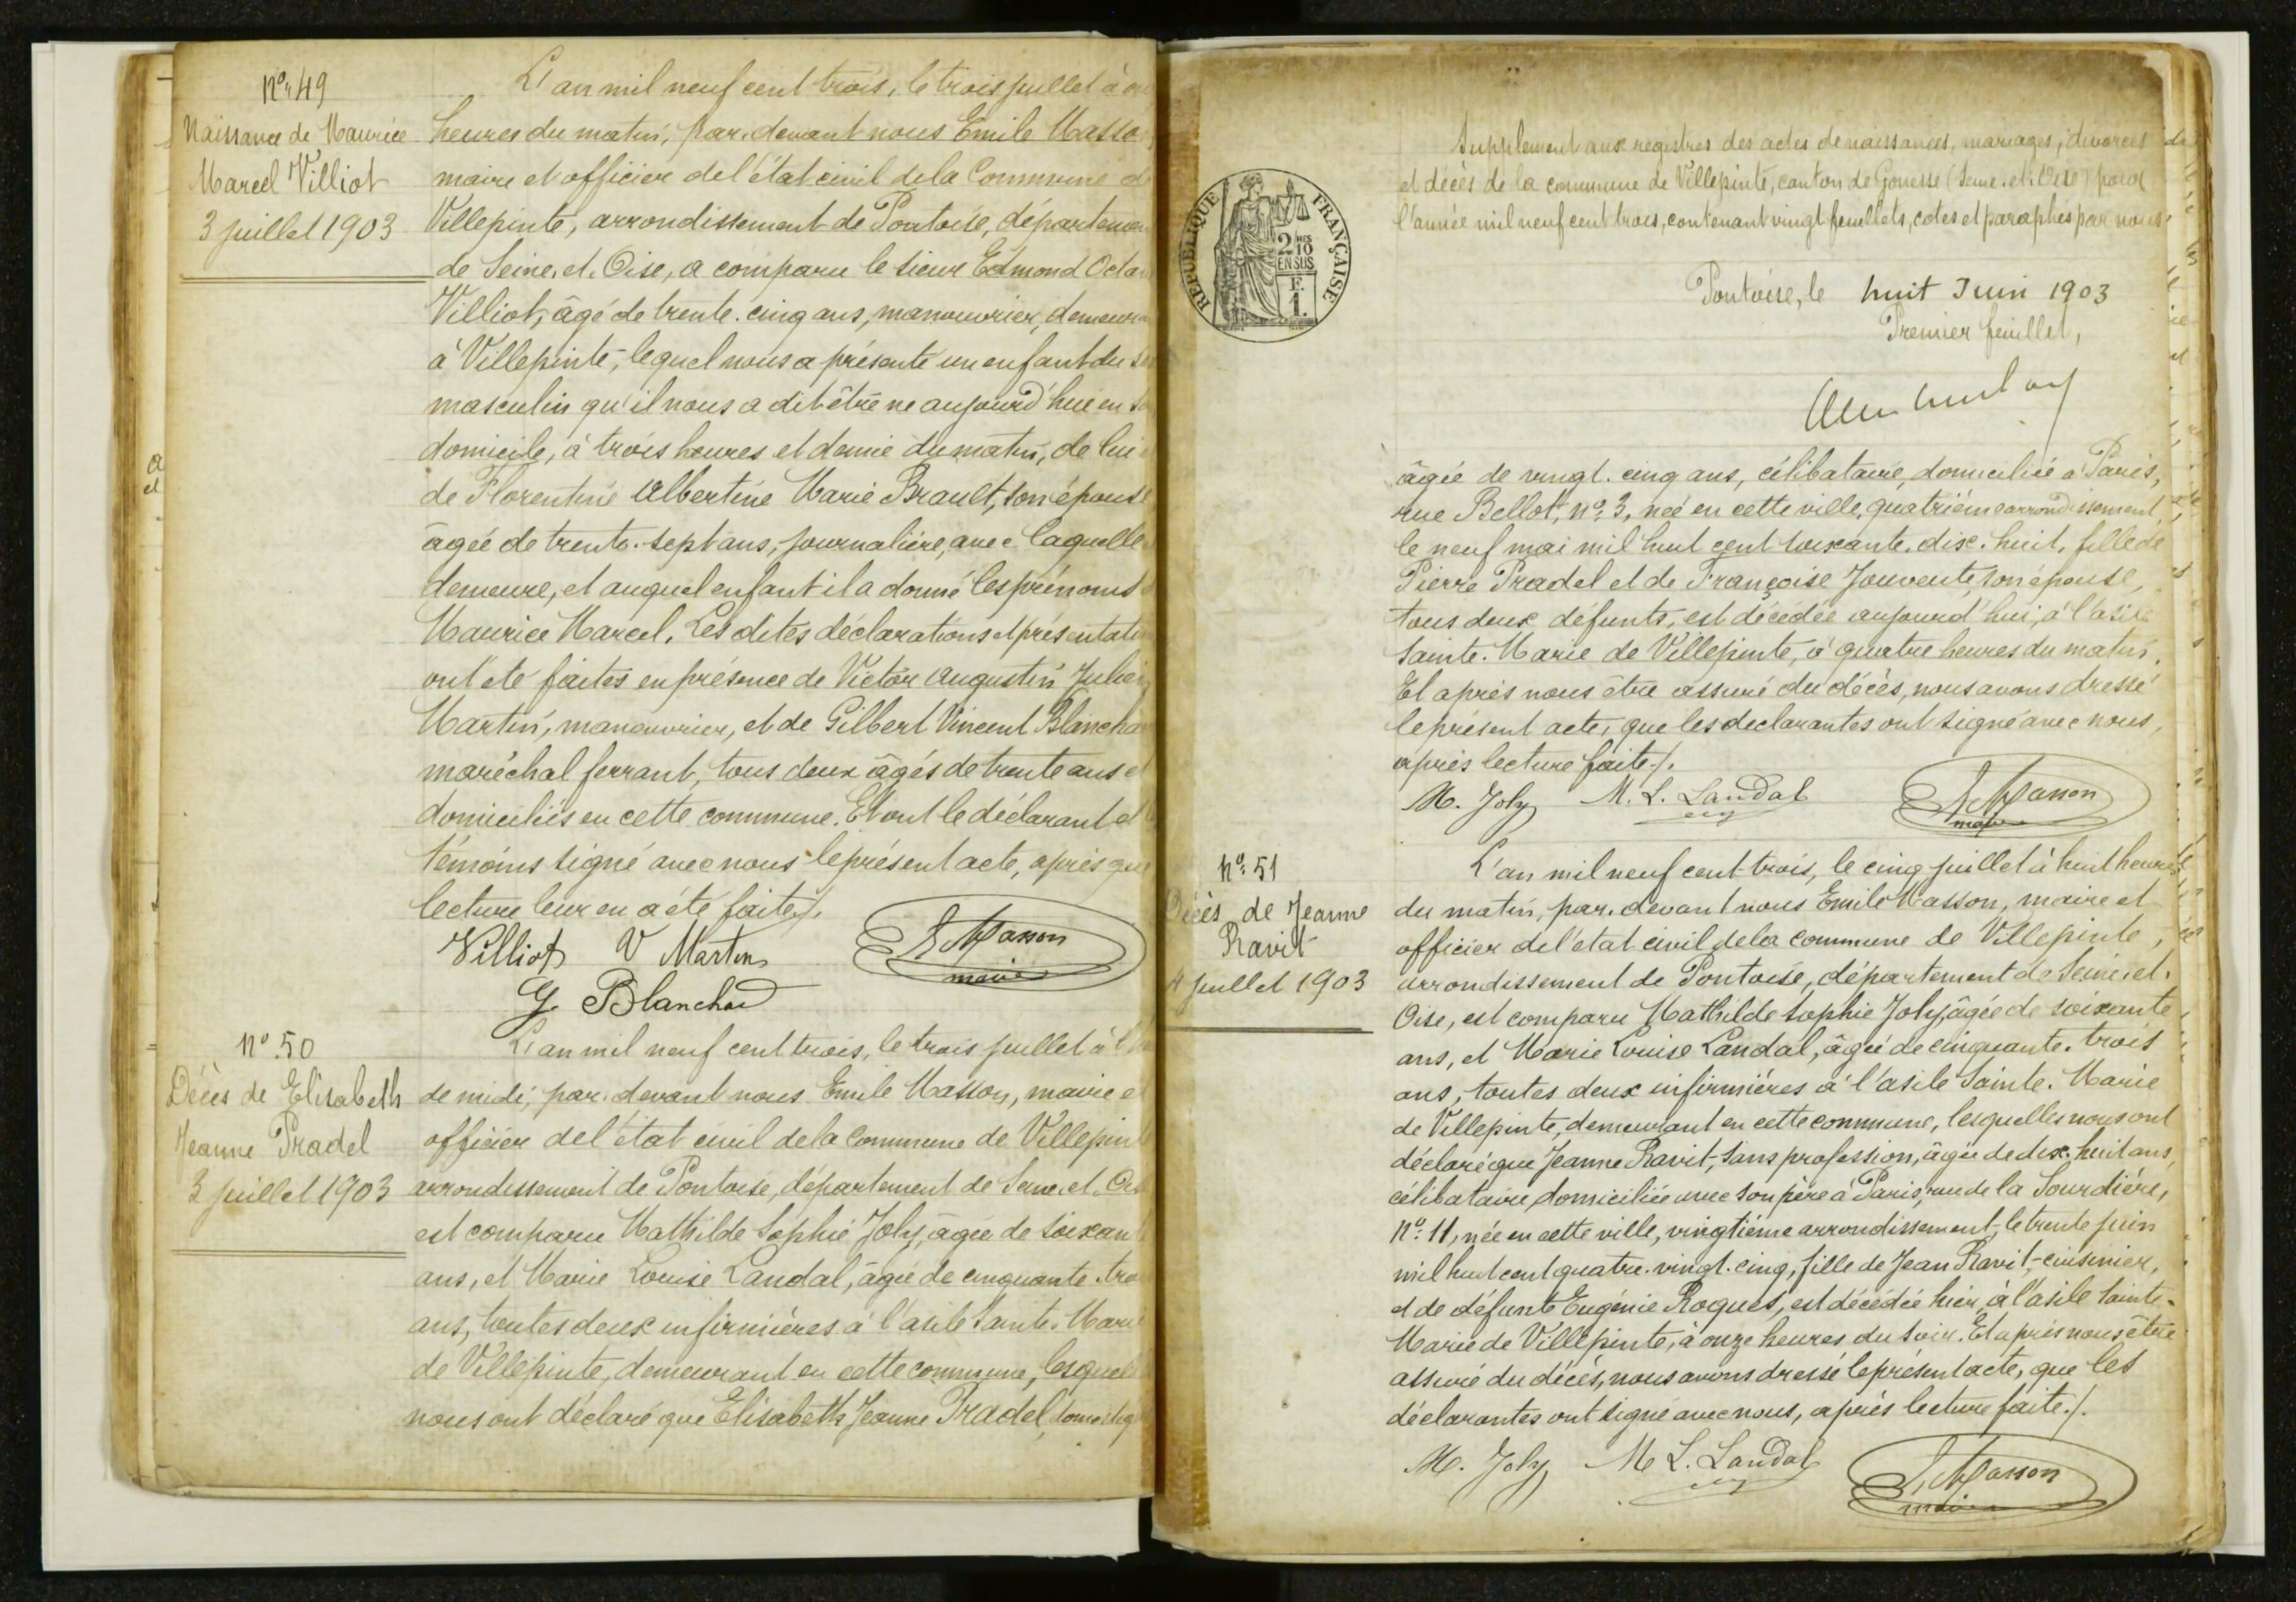 Nº 49
Naissance de Maurice
Marcel Villiot
3 juillet 1903
L'an mil neuf cent trois, le trois juillet à
heures du matin, par-devant nous Emile Masson
maire et officier de l'état civil de la Commune de
Villepinte, arrondissement de Pontoise, départemen
de Seine-et-Oise, a comparu le sieur Edmond Octa
Villiot, âgé de trente-cinq ans, manouvrier, demeura
à Villepinte, lequel nous a présenté un enfant du se
masculin qu'il nous a dit être né aujourd'hui en so
domicile, à trois heures et demie du matin, de lui
de Florentine Albertine Marie Brault, son épouse
âgée de trente-sept ans, journalière, avec laquelle
demeure, et auquel enfant il a donné les prénoms
Maurice Marcel. Les dites déclarations et présentati
ont été faites en présence de Victor Augustin Julien
Martin, manouvrier, et de Gilbert Vincent Blancha
maréchal ferrant, tous deux âgés de trente ans et
domiciliés en cette commune. Et ont le déclarant et
témoins signé avec nous le présent acte, après que
lecture leur en a été faite./.
Villiot V Martin E Masson
maire
G. Blanchard
Nº 50
Décès de Elisabeth
Jeanne Pradel
3 juillet 1903
L'an mil neuf cent trois, le trois juillet à
de midi, par-devant nous Emile Masson, maire et
officier de l'état civil de la Commune de Villepinte
arrondissement de Pontoise, département de Seine-et-Oi
est comparu Mathilde Sophie Joly, âgée de soixante
ans, et Marie Louise Landal, âgée de cinquante-tro
ans, toutes deux infirmières à l'asile Sainte-Marie
de Villepinte, demeurant en cette commune, lesquel
nous ont déclaré que Elisabeth Jeanne Pradel, domestiq
Supplément aux registres des actes de naissances, mariages, divorces
et décès de la commune de Villepinte, canton de Gonesse (Seine-et-Oise) pour
l'année mil neuf cent trois, contenant vingt feuillets, cotés et paraphés par nous
REPUBLIQUE FRANÇAISE
2/10 MES
EN SUS
F.
1.
Pontoise, le huit Juin 1903
Premier feuillet,
âgée de vingt-cinq ans, célibataire, domiciliée à Paris,
rue Bellot, nº 3, née en cette ville, quatrième arrondissement,
le neuf mai mil huit cent soixante-dix-huit, fille de
Pierre Pradel et de Françoise Jouvente, son épouse,
tous deux défunts, est décédée aujourd'hui, à l'asile
Sainte-Marie de Villepinte, à quatre heures du matin.
Et après nous être assuré du décès, nous avons dressé
le présent acte, que les déclarantes ont signé avec nous,
après lecture faite./.
M. Joly M. L. Landal E Masson
maire
Nº 51
Décès de Jeanne
Ravit
4 juillet 1903
L'an mil neuf cent trois, le cinq juillet à huit heures
du matin, par-devant nous Emile Masson, maire et
officier de l'état civil de la commune de Villepinte,
arrondissement de Pontoise, département de Seine-et-
Oise, est comparu Mathilde Sophie Joly, âgée de soixante
ans, et Marie Louise Landal, âgée de cinquante-trois
ans, toutes deux infirmières à l'asile Sainte-Marie
de Villepinte, demeurant en cette commune, lesquelles nous ont
déclaré que Jeanne Ravit, sans profession, âgée de dix-huit ans,
célibataire, domiciliée avec son père à Paris, rue de la Sourdière,
nº 11, née en cette ville, vingtième arrondissement, le trente juin
mil huit cent quatre-vingt-cinq, fille de Jean Ravit, cuisinier,
et de défunte Eugénie Roques, est décédée hier, à l'asile Sainte-
Marie de Villepinte, à onze heures du soir. Et après nous être
assuré du décès, nous avons dressé le présent acte, que les
déclarantes ont signé avec nous, après lecture faite./.
M. Joly M L. Landal E Masson
maire